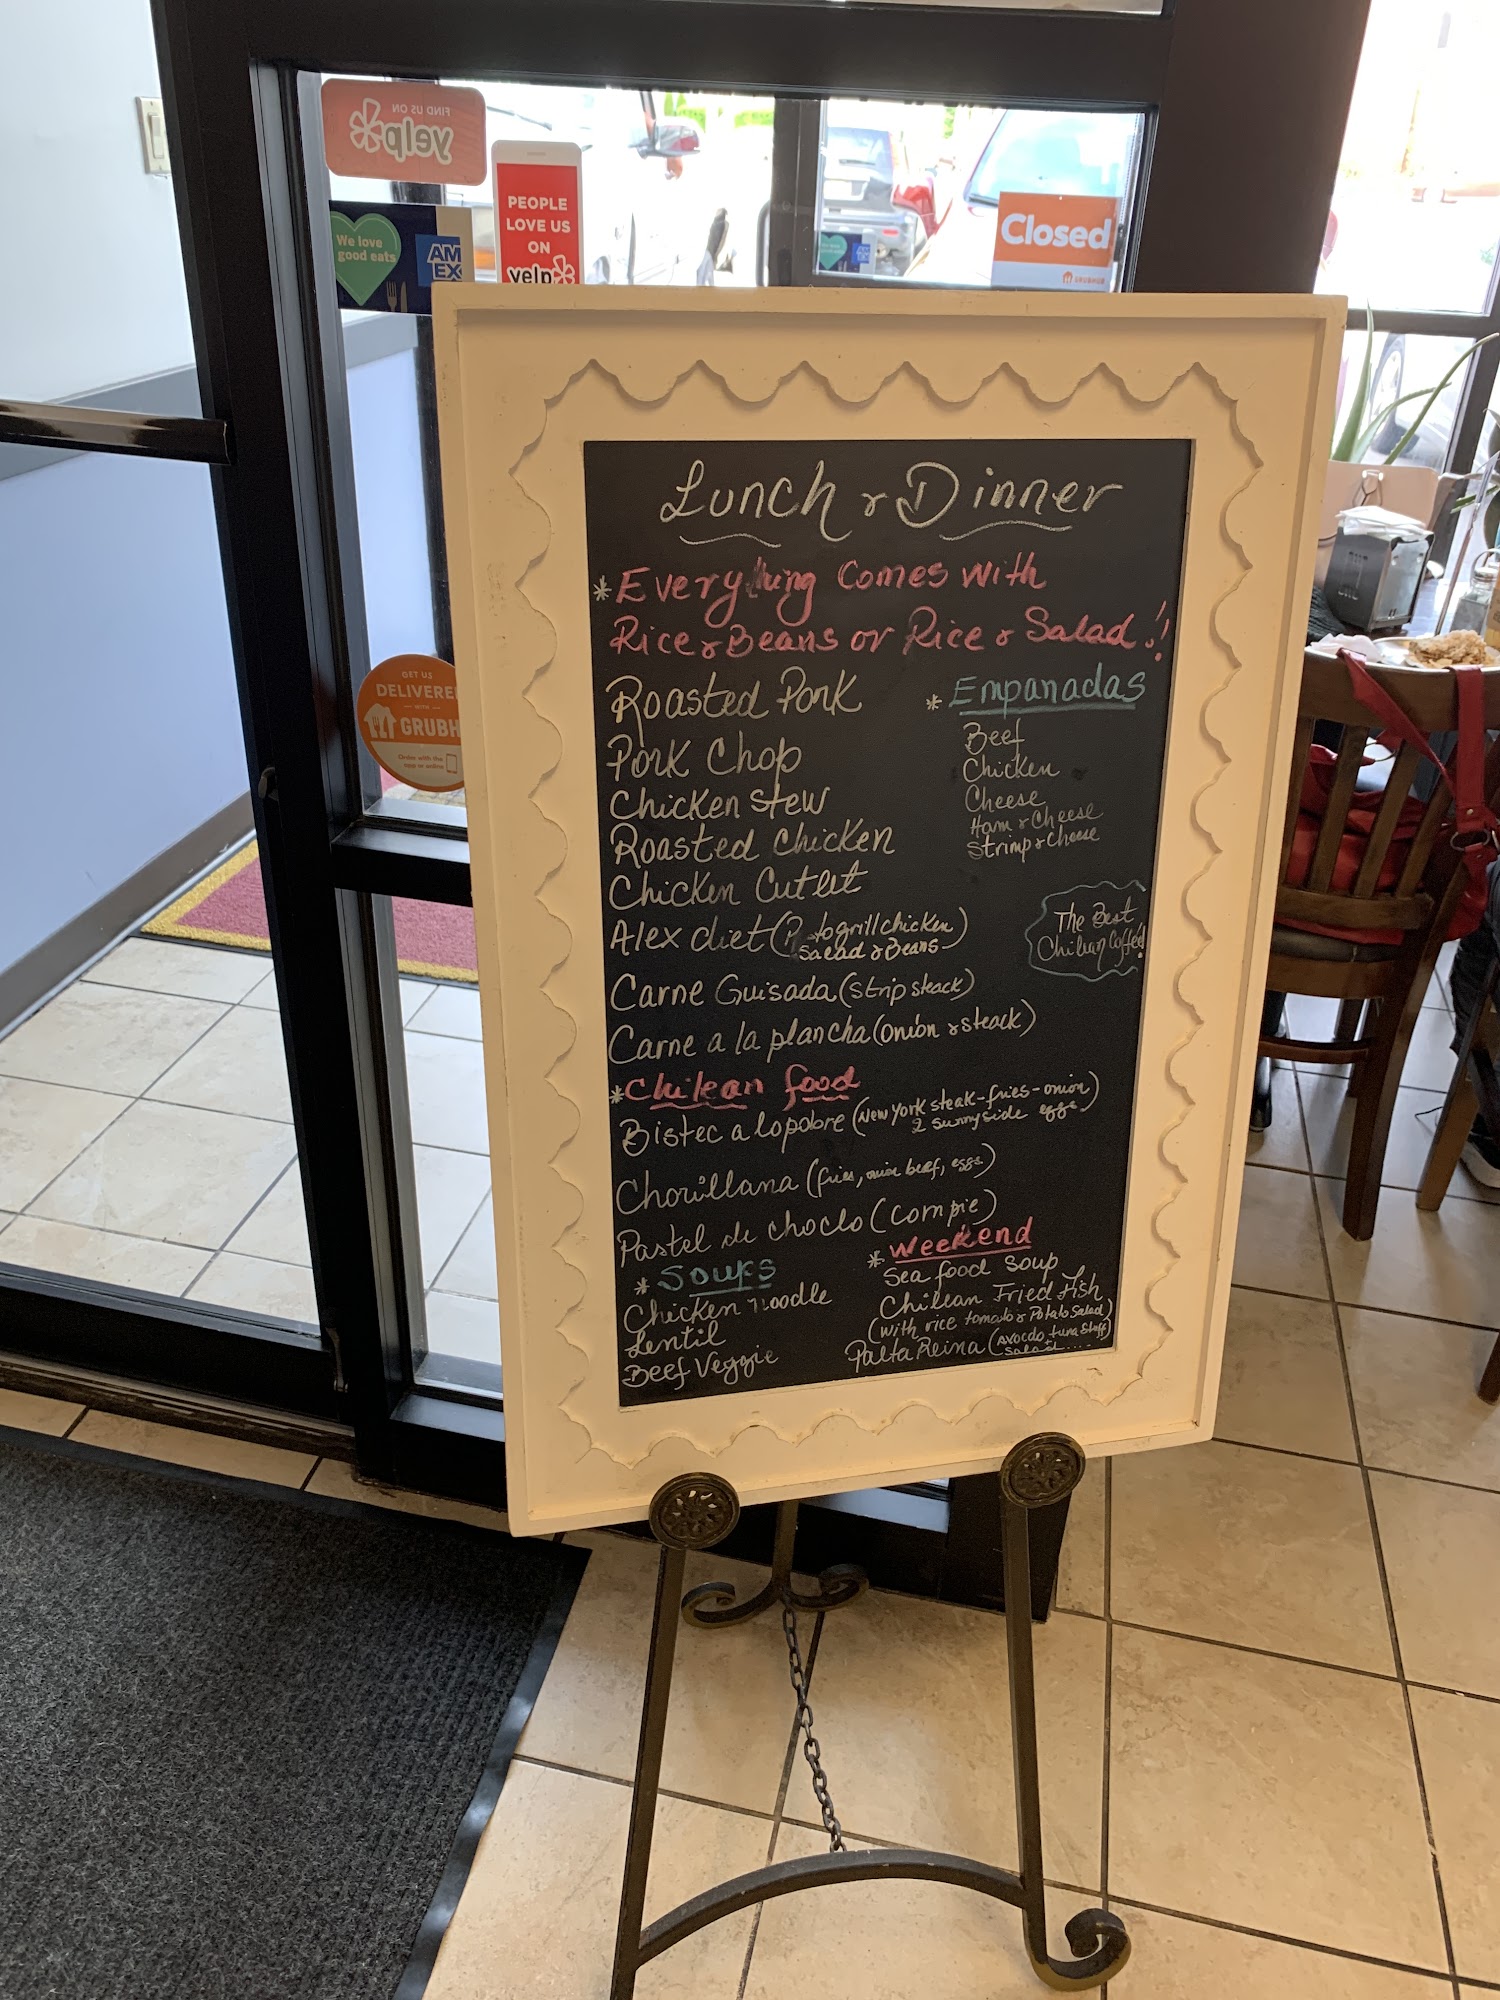 FIND US ON
yelp
PEOPLE
LOVE US
ON
yelp
We love
good eats
AM
EX
Closed
GRUBHUB
GET US
DELIVERE
GRUBH
Order with the
app or online
Lunch & Dinner
*Everything Comes with
Rice & Beans or Rice & Salad!!
Roasted Pork
Pork Chop
Chicken Stew
Roasted Chicken
Chicken Cutlet
Alex diet (P to grill chicken
Salad & Beans)
Carne Guisada (Strip steack)
Carne a la plancha (onion & steack)
* Empanadas
Beef
Chicken
Cheese
Ham & Cheese
Strimp & Cheese
The Best
Chilean Coffee!
*Chilean food
Bistec a lo pobre (New York steak-fries-onion
2 sunny side eggs)
Chorillana (fries, onion beef, eggs)
Pastel de choclo (corn pie)
* Soups
Chicken noodle
Lentil
Beef Veggie
* Weekend
Sea food Soup
Chilean Fried Fish
(with rice tomato & Potato Salad)
Palta Reina (Avocdo, tuna Stuff
Salad....)